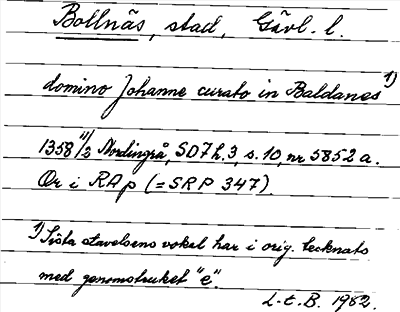 Bollnäs, stad, Gävl. l.
domino Johanne curato in Baldanes 1)
1358 11/2 Nordingrå, SD 7 h. 3, s. 10, nr 5852 a.
Or i RAp (= SRP 347).
1) Sista stavelsens vokal har i orig. tecknats
med genomstruket "e".
L. t. B. 1982.